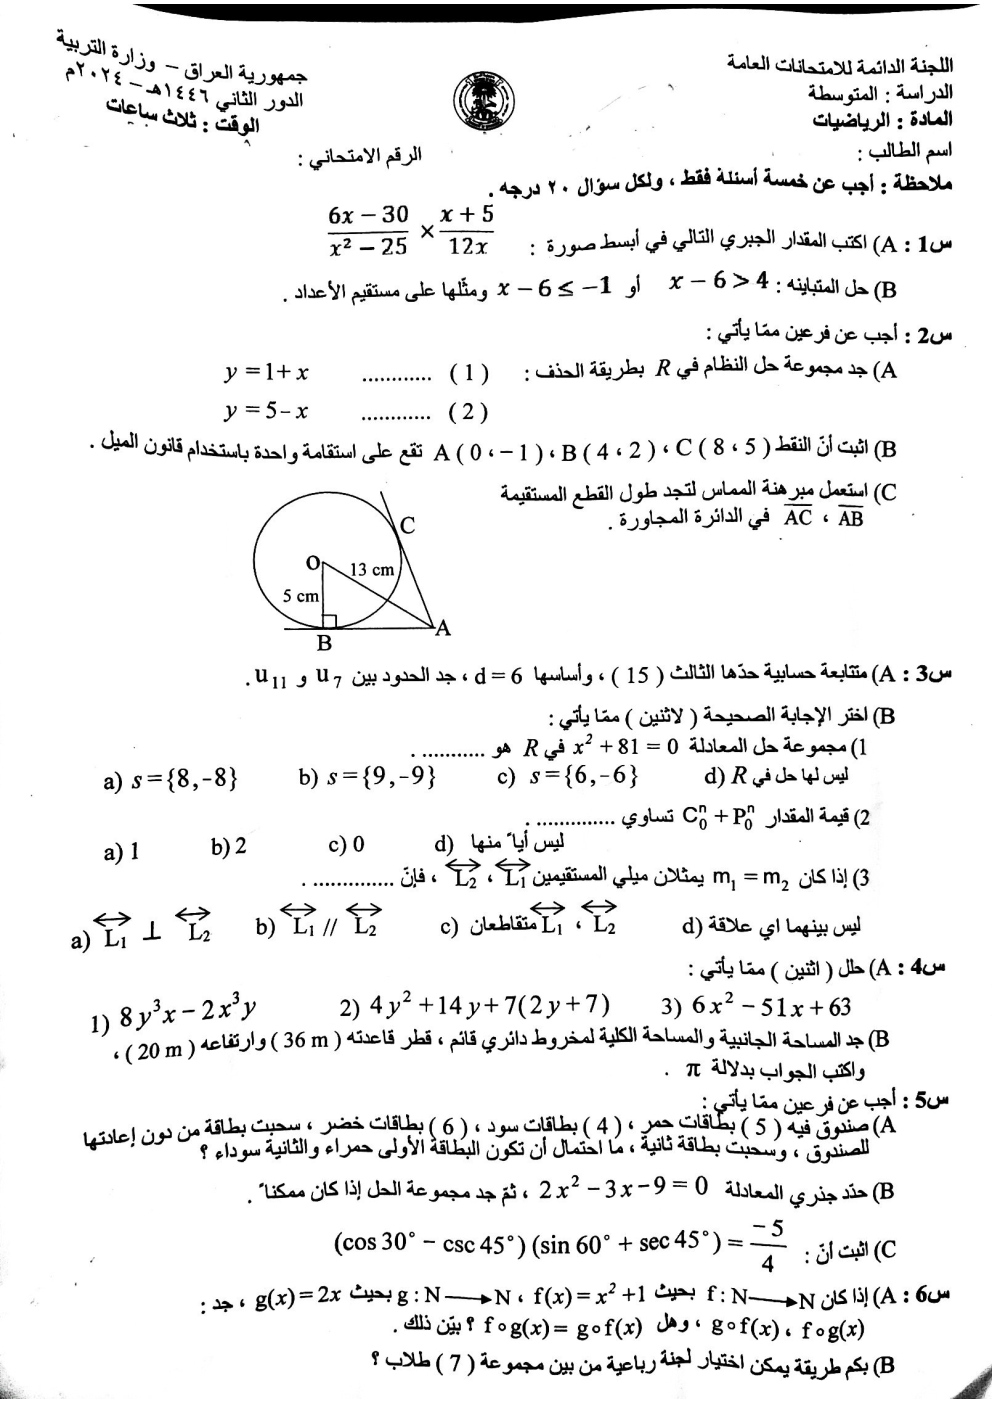 اللجنة الدائمة للامتحانات العامة
الدراسة : المتوسطة
المادة : الرياضيات
اسم الطالب :
جمهورية العراق – وزارة التربية
الدور الثاني ١٤٤٦هـ – ٢٠٢٤م
الوقت : ثلاث ساعات
الرقم الامتحاني :
ملاحظة : أجب عن خمسة أسئلة فقط ، ولكل سؤال ٢٠ درجه .
س1 : A) اكتب المقدار الجبري التالي في أبسط صورة : (6x − 30)/(x² − 25) × (x + 5)/(12x)
B) حل المتباينه : x − 6 > 4 أو x − 6 ≤ −1 ومثّلها على مستقيم الأعداد .
س2 : أجب عن فرعين ممّا يأتي :
A) جد مجموعة حل النظام في R بطريقة الحذف : y = 1+ x ............ ( 1 )
y = 5− x ............ ( 2 )
B) اثبت أنّ النقط A ( 0 ، − 1 ) ، B ( 4 ، 2 ) ، C ( 8 ، 5 ) تقع على استقامة واحدة باستخدام قانون الميل .
C) استعمل مبرهنة المماس لتجد طول القطع المستقيمة
AB ، AC في الدائرة المجاورة .
C
O
13 cm
5 cm
A
B
س3 : A) متتابعة حسابية حدّها الثالث ( 15 ) ، وأساسها d = 6 ، جد الحدود بين u₇ و u₁₁ .
B) اختر الإجابة الصحيحة ( لاثنين ) ممّا يأتي :
1) مجموعة حل المعادلة x² + 81 = 0 في R هو ........... .
a) s = {8,−8} b) s = {9,−9} c) s = {6,−6} d) ليس لها حل في R
2) قيمة المقدار C₀ⁿ + P₀ⁿ تساوي .............. .
a) 1 b) 2 c) 0 d) ليس أياً منها
3) إذا كان m₁ = m₂ يمثلان ميلي المستقيمين L₁ ، L₂ ، فإنّ .............. .
a) L₁ ⊥ L₂ b) L₁ // L₂ c) L₁ ، L₂ متقاطعان d) ليس بينهما اي علاقة
س4 : A) حلل ( اثنين ) ممّا يأتي :
1) 8y³x − 2x³y 2) 4y² + 14y + 7(2y + 7) 3) 6x² − 51x + 63
B) جد المساحة الجانبية والمساحة الكلية لمخروط دائري قائم ، قطر قاعدته ( 36 m ) وارتفاعه ( 20 m ) ،
واكتب الجواب بدلالة π .
س5 : أجب عن فرعين ممّا يأتي :
A) صندوق فيه ( 5 ) بطاقات حمر ، ( 4 ) بطاقات سود ، ( 6 ) بطاقات خضر ، سحبت بطاقة من دون إعادتها
للصندوق ، وسحبت بطاقة ثانية ، ما احتمال أن تكون البطاقة الأولى حمراء والثانية سوداء ؟
B) حدّد جذري المعادلة 2x² − 3x − 9 = 0 ، ثمّ جد مجموعة الحل إذا كان ممكناً .
C) اثبت أنّ : (cos 30° − csc 45°) (sin 60° + sec 45°) = −5/4
س6 : A) إذا كان f : N ⟶ N بحيث f(x) = x² +1 ، g : N ⟶ N بحيث g(x) = 2x ، جد :
f∘g(x) ، g∘f(x) ، وهل f∘g(x) = g∘f(x) ؟ بيّن ذلك .
B) بكم طريقة يمكن اختيار لجنة رباعية من بين مجموعة ( 7 ) طلاب ؟